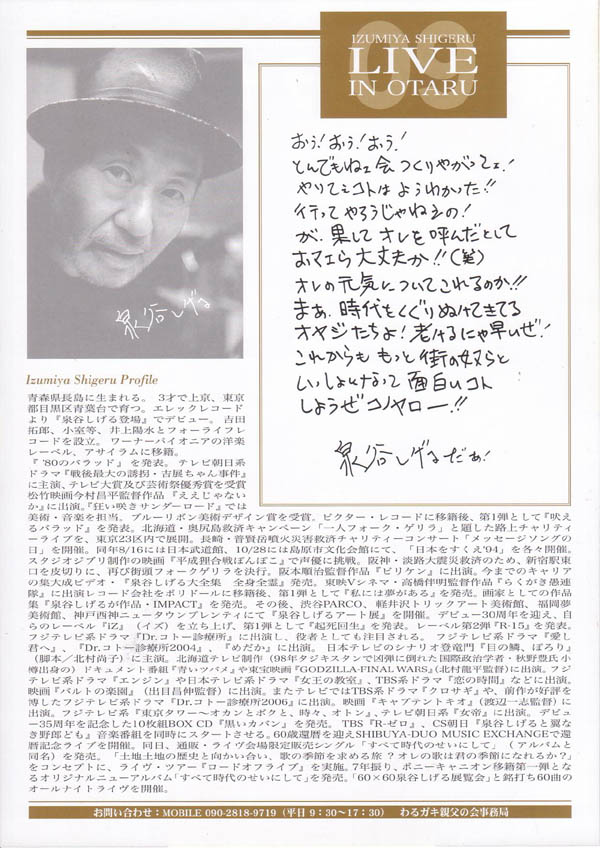 IZUMIYA SHIGERU
09
LIVE
IN OTARU
おぅ!おぅ!おぅ!
とんでもねェ会つくりやがってェ!
やりてェコトはようわかった!!
行ってやろうじゃねえの!
が、果してオレを呼んだとして
おマエら大丈夫か!!(笑)
オレの元気についてこれるのか!!
まぁ、時代をくぐりぬけてきてる
オヤジたちよ!老けるにゃ早いぜ!
これからももっと街の奴らと
いっしょんなって面白いコト
しようぜコノヤロー!!
泉谷しげるだぁ!
泉谷しげる
Izumiya Shigeru Profile
青森県長島に生まれる。 3才で上京、東京
都目黒区青葉台で育つ。エレックレコード
より『泉谷しげる登場』でデビュー。 吉田
拓郎、小室等、井上陽水とフォーライフレ
コードを設立。 ワーナーパイオニアの洋楽
レーベル、アサイラムに移籍。
『 '80のバラッド 』 を発表。 テレビ朝日系
ドラマ『戦後最大の誘拐・吉展ちゃん事件』
に主演、テレビ大賞及び芸術祭優秀賞を受賞
松竹映画今村昌平監督作品 『ええじゃない
か』に出演。『狂い咲きサンダーロード』では
美術・音楽を担当。ブルーリボン美術デザイン賞を受賞。ビクター・レコードに移籍後、第1弾として『吠え
るバラッド』を発表。北海道・奥尻島救済キャンペーン「一人フォーク・ゲリラ」と題した路上チャリティ
ーライブを、東京23区内で展開。長崎・普賢岳噴火災害救済チャリティーコンサート「メッセージソングの
日」を開催。同年8/16には日本武道館、10/28には島原市文化会館にて、「日本をすくえ'94」を各々開催。
スタジオジブリ制作の映画『平成狸合戦ぽんぽこ』で声優に挑戦。阪神・淡路大震災救済のため、新宿駅東
口を皮切りに、再び街頭フォークゲリラを決行。阪本順治監督作品『ビリケン』に出演。今までのキャリア
の集大成ビデオ・『泉谷しげる大全集 全身全霊』発売。東映Vシネマ・高橋伴明監督作品『らくがき愚連
隊』に出演レコード会社をポリドールに移籍後、第1弾として『私には夢がある』を発売。画家としての作品
集『泉谷しげるが作品・IMPACT』を発売。その後、渋谷PARCO、軽井沢トリックアート美術館、福岡夢
美術館、神戸西神ニュータウンプレンティにて『泉谷しげるアート展』を開催。デビュー30周年を迎え、自
らのレーベル『IZ』（イズ）を立ち上げ、第1弾として『起死回生』を発表。レーベル第2弾『R-15』を発表。
フジテレビ系ドラマ『Dr.コトー診療所』に出演し、役者としても注目される。 フジテレビ系ドラマ『愛し
君へ』、『Dr.コトー診療所2004』、『めだか』に出演。 日本テレビのシナリオ登竜門『目の鱗、ぽろり』
（脚本／北村尚子）に主演。北海道テレビ制作（98年タジキスタンで凶弾に倒れた国際政治学者・秋野豊氏小
樽出身の）ドキュメント番組『青いツバメ』や東宝映画『GODZILLA-FINAL WARS』(北村龍平監督)に出演。フジ
テレビ系ドラマ『エンジン』や日本テレビ系ドラマ『女王の教室』、TBS系ドラマ『恋の時間』などに出演。
映画『バルトの楽園』（出目昌伸監督）に出演。またテレビではTBS系ドラマ『クロサギ』や、前作が好評を
博したフジテレビ系ドラマ『Dr.コトー診療所2006』に出演。映画『キャプテントキオ』（渡辺一志監督）に
出演。フジテレビ系『東京タワー〜オカンとボクと、時々、オトン』、テレビ朝日系『女帝』に出演。 デビュ
ー35周年を記念した10枚組BOX CD『黒いカバン』を発売。 TBS『R-ゼロ』、CS朝日『泉谷しげると翼な
き野郎ども』音楽番組を同時にスタートさせる。60歳還暦を迎えSHIBUYA-DUO MUSIC EXCHANGEで還
暦記念ライブを開催。同日、通販・ライヴ会場限定販売シングル「すべて時代のせいにして」（アルバムと
同名）を発売。 「土地土地の歴史と向かい合い、歌の季節を求める旅？オレの歌は君の季節になれるか？」
をコンセプトに、ライヴ・ツアー『ロードオフライブ』を実施。7年振り、ポニーキャニオン移籍第一弾とな
るオリジナルニューアルバム「すべて時代のせいにして」を発売。「60×60泉谷しげる展覧会」と銘打ち60曲の
オールナイトライヴを開催。
お問い合わせ：MOBILE 090-2818-9719（平日 9：30〜17：30） わるガキ親父の会事務局